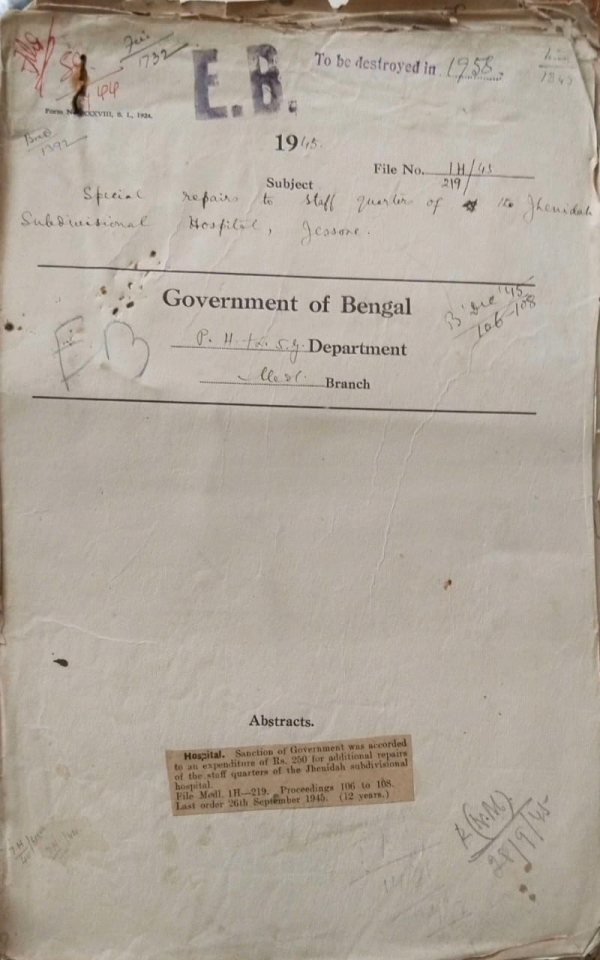 1732
E.B.
To be destroyed in 1958
Form No. XXXVIII, S. I., 1924.
1392
1945.
File No. 1H/45
219/
Subject
Special repairs to staff quarters of the Jhenidah
Subdivisional Hospital, Jessore.
B Dec '45
106-108
Government of Bengal
P. H. & L. S. G. Department
Medl. Branch
EB
Abstracts.
Hospital. Sanction of Government was accorded
to an expenditure of Rs. 250 for additional repairs
of the staff quarters of the Jhenidah subdivisional
hospital.
File Medl. 1H—219. Proceedings 106 to 108.
Last order 26th September 1945. (12 years.)
28/9/45